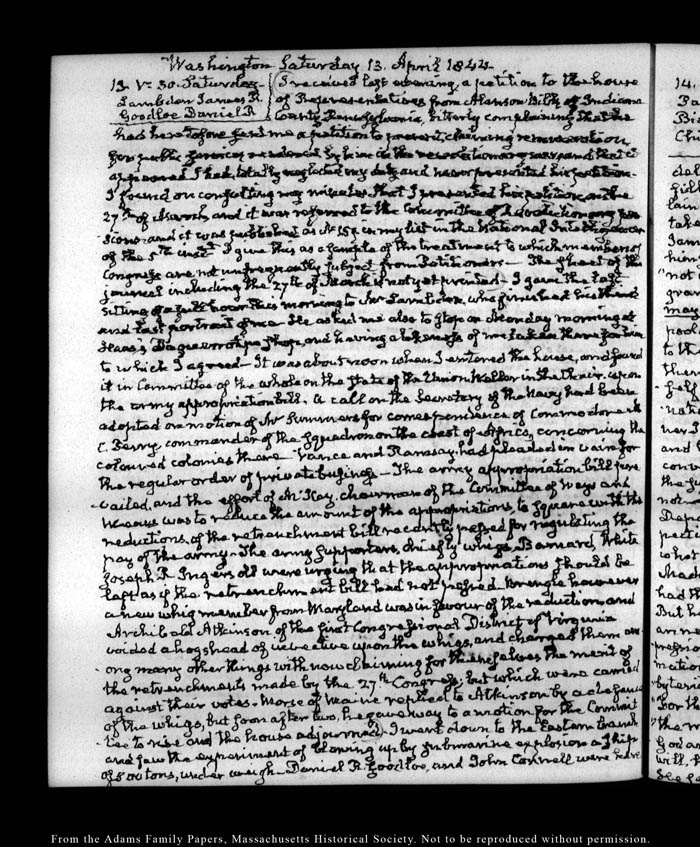 Washington Saturday 13. April 1844
13. V. 30. Saturday
Lambdin James R.
Goodloe Daniel R
I received last evening a petition to the house
of Representatives from Alanson Bills of Indiana
County Pennsylvania, bitterly complaining that he
had heretofore sent me a petition to present, claiming remuneration
for public services rendered by him in the revolutionary war and that
I had totally neglected my duty and never presented his petition.
I found on consulting my minutes that I presented his petition on the
27th. of March, and it was referred to the Committee of revolutionary pen
sions and it was published as No. in my list in the National Intelligencer
of the 5th. inst. I give this as a sample of the treatment to which members of
Congress are not unfrequently subject from Petitioners. The sheet of the
journal including the 27th of March is not yet printed. I gave the last
sitting of a full hour this morning to Mr Lambdin, who finished his third
and last portrait of me. He asked me also to stop on Monday morning at
Haas's Daguerrotype shop, and having a likeness of me taken there for him
to which I agreed. It was about noon when I entered the house, and found
it in Committee of the whole on the state of the Union Weller in the chair, upon
the army appropriation bill. A call on the Secretary of the Navy had been
adopted on motion of Mr Summers for correspondence of Commodore M
C. Perry, commander of the Squadron on the coast of Africa, concerning the
coloured colonies there. Vance and Ramsay had pleaded in vain for
the regular order of private business. The army appropriation bill pre
vailed, and the effort of McKay, chairman of the Committee of Ways and
means was to reduce the amount of the appropriations, to square with the
reductions, of the retrenchment bill recently passed for regulating the
pay of the army. The army supporters, chiefly whigs, Barnard, White
Joseph R. Ingersoll were urging that the appropriations should be
left as if the retrenchment bill had not passed. Brengle however
a new whig member from Maryland was in favour of the reduction, and
Archibald Atkinson of the first Congressional District of Virginia
voided a hogshead of invective upon the whigs, and charged them am
ong many other things with now claiming for themselves the merit of
the retrenchments made by the 27th. Congress, but which were carried
against their votes. Morse of Maine replied to Atkinson by a defence
of the whigs, but soon after two, he gave way to a motion for the Commit
tee to rise and the house adjourned. I went down to the Eastern branch
and saw the experiment of blowing up by submarine explosion a Ship
of tons, under weigh. Daniel R. Goodloe, and John Connell, were here
14.
From the Adams Family Papers, Massachusetts Historical Society. Not to be reproduced without permission.